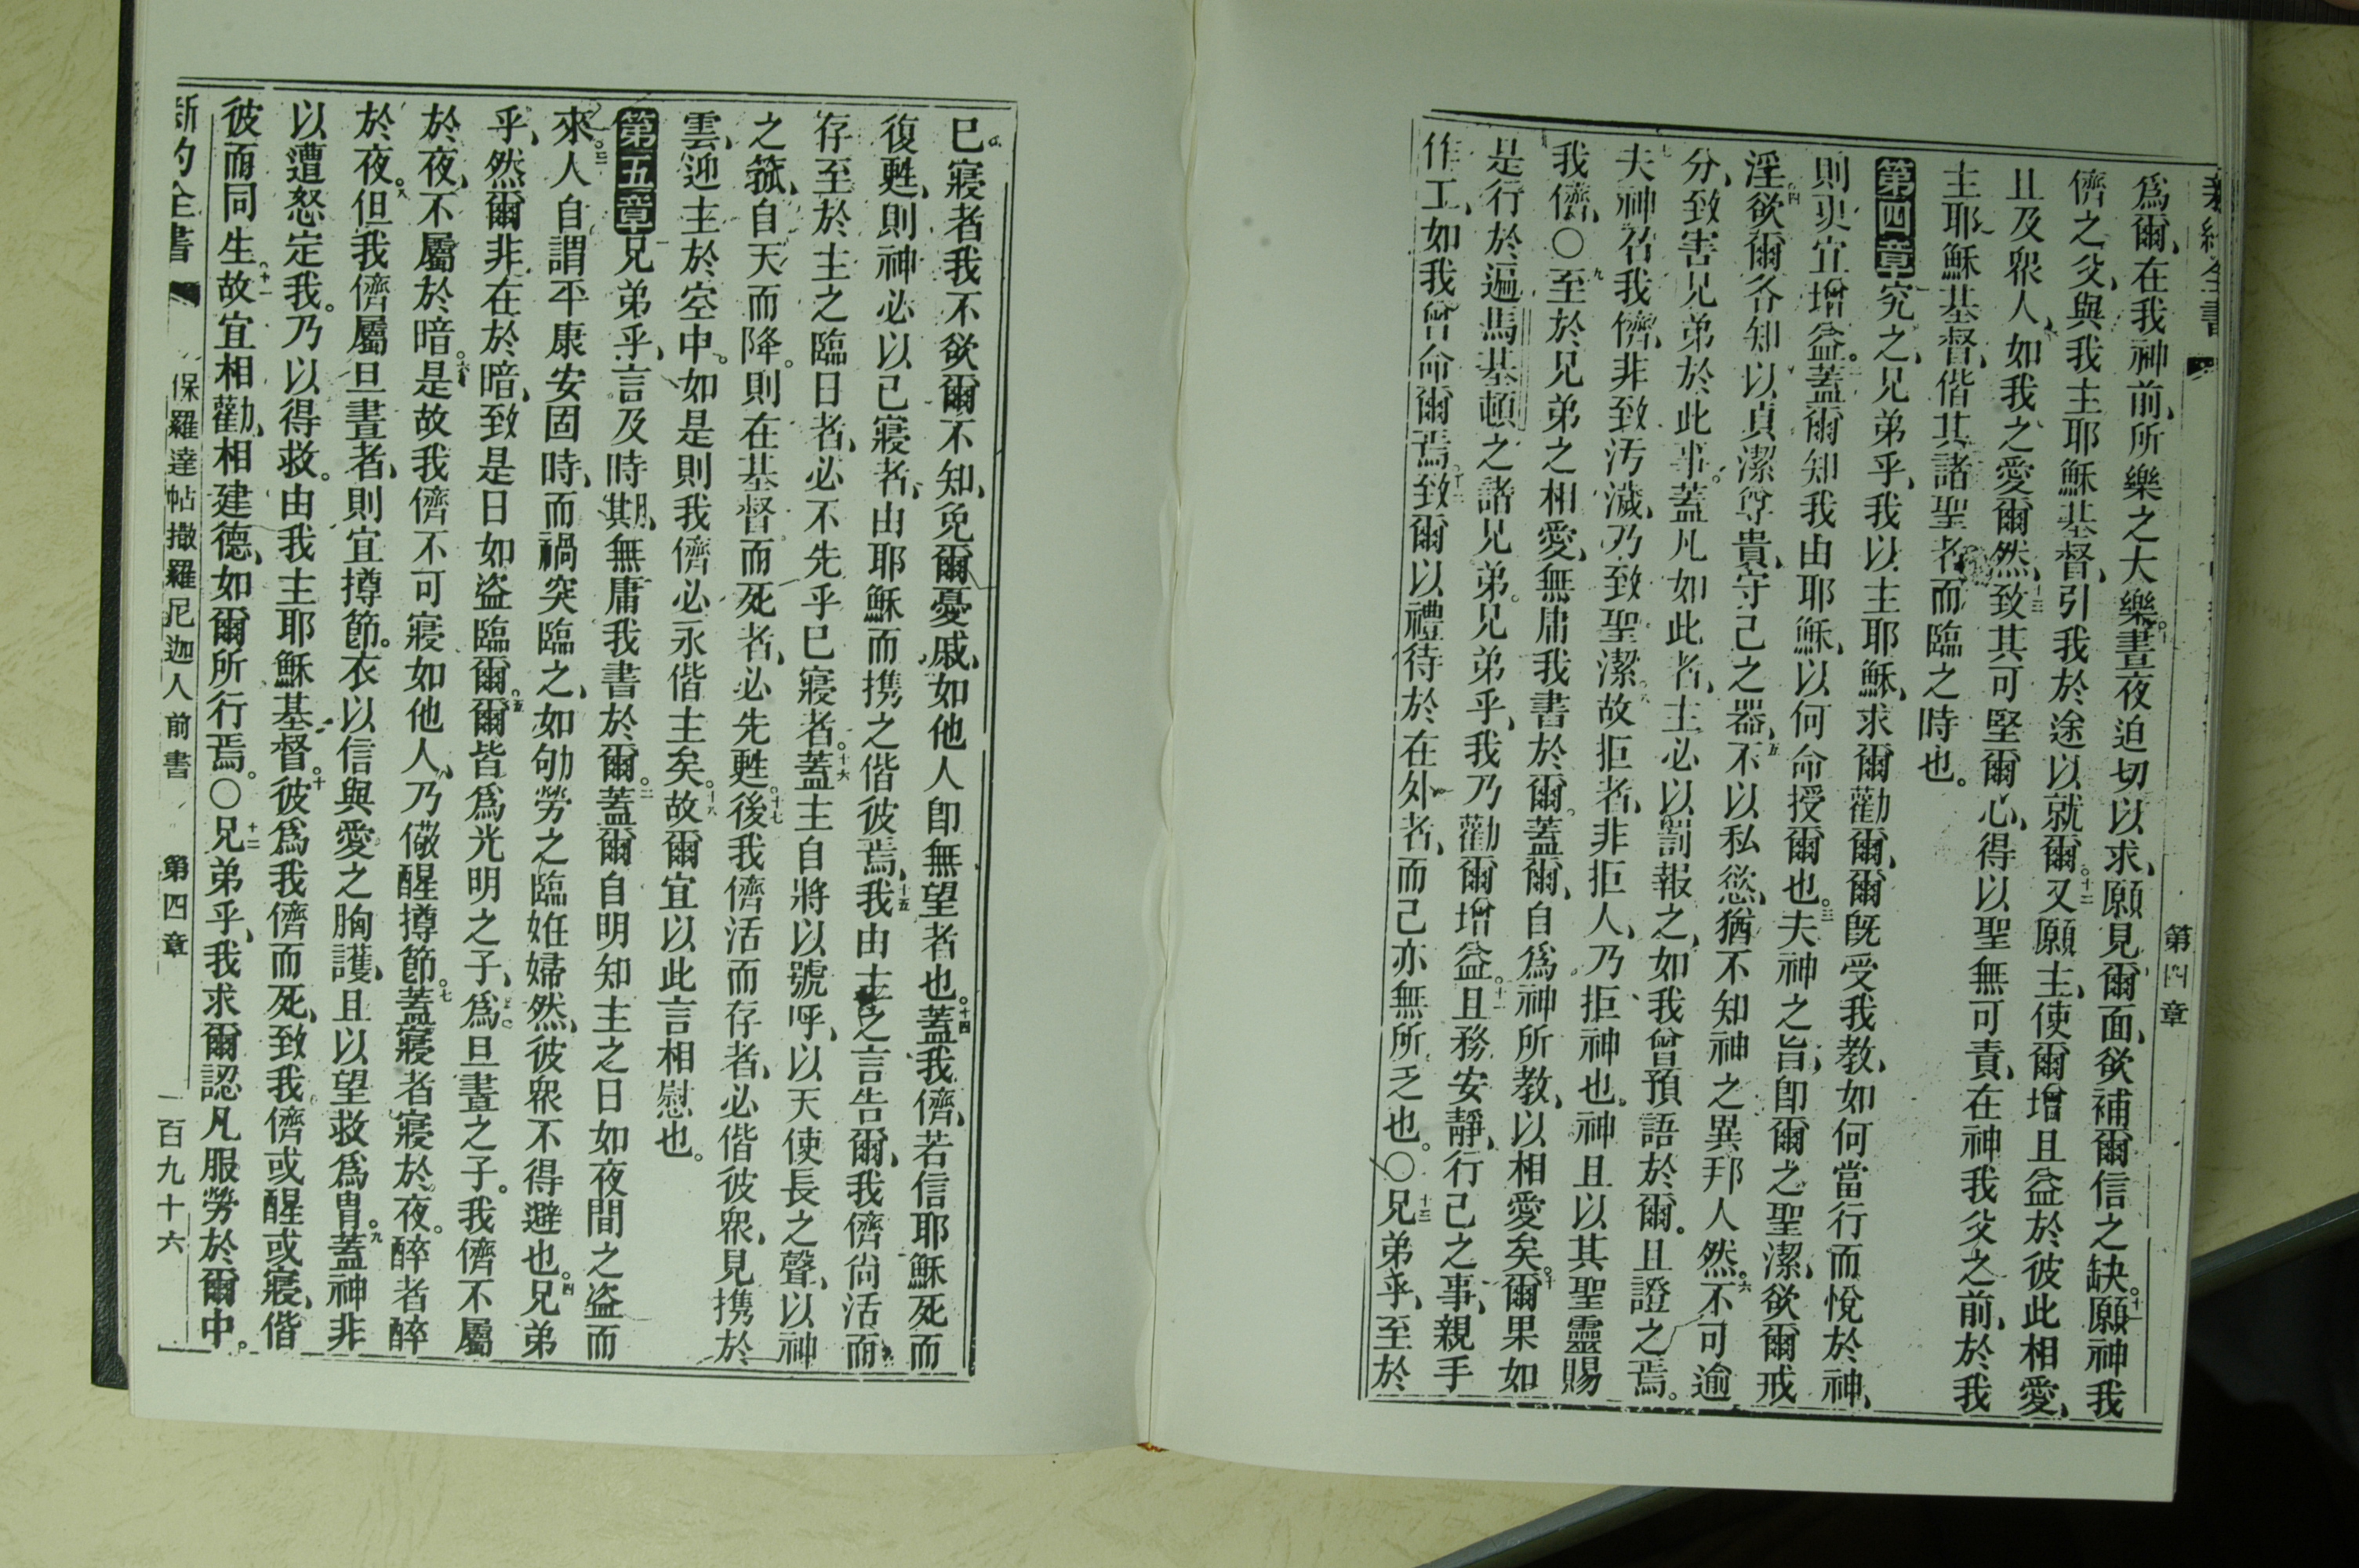 新約全書
第四章
爲爾、在我神前、所樂之大樂。十晝夜迫切以求、願見爾面、欲補爾信之缺。十一願神我
儕之父、與我主耶穌基督、引我於途以就爾。十二又願主、使爾增且益於彼此相愛、
且及衆人、如我之愛爾然、十三致其可堅爾心、得以聖無可責、在神我父之前、於我
主耶穌基督、偕其諸聖者而臨之時也。
第四章究之、兄弟乎、我以主耶穌、求爾勸爾、爾旣受我教、如何當行而悅於神、
則更宜增益。二蓋爾知我由耶穌、以何命授爾也。三夫神之旨、卽爾之聖潔、欲爾戒
淫。四欲爾各知以貞潔尊貴、守己之器、五不以私慾、猶不知神之異邦人然。六不可逾
分、致害兄弟於此事。蓋凡如此者、主必以罰報之、如我曾預語於爾。且證之焉。
七夫神召我儕、非致汚濊、乃致聖潔。八故拒者、非拒人、乃拒神也。神且以其聖靈賜
我儕、〇九至於兄弟之相愛、無庸我書於爾。蓋爾、自爲神所教、以相愛矣。十爾果如
是行於遍馬基頓之諸兄弟。兄弟乎、我乃勸爾增益。十一且務安靜、行己之事、親手
作工、如我曾命爾焉。十二致爾以禮待於在外者、而己亦無所乏也。〇十三兄弟乎、至於
已寢者、我不欲爾不知、免爾憂戚、如他人卽無望者也。十四蓋我儕、若信耶穌死而
復甦、則神必以已寢者、由耶穌而携之偕彼焉、十五我由主之言告爾、我儕尙活而
存至於主之臨日者、必不先乎已寢者。十六蓋主自將以號呼、以天使長之聲、以神
之箛、自天而降。則在基督而死者、必先甦。十七後我儕活而存者、必偕彼衆、見携於
雲、迎主於空中。如是則我儕必永偕主矣。十八故爾宜以此言相慰也。
第五章兄弟乎、言及時期、無庸我書於爾。二蓋爾自明知主之日如夜間之盜而
來。三人自謂平康安固時、而禍突臨之、如劬勞之臨姙婦然、彼衆不得避也。四兄弟
乎、然爾非在於暗、致是日如盜臨爾。五爾皆爲光明之子、爲旦晝之子。我儕不屬
於夜、不屬於暗。六是故我儕不可寢如他人、乃儆醒撙節。七蓋寢者寢於夜。醉者醉
於夜。八但我儕屬旦晝者、則宜撙節。衣以信與愛之胸護、且以望救爲冑。九蓋神非
以遭怒定我。乃以得救。由我主耶穌基督。十彼爲我儕而死、致我儕或醒或寢、偕
彼而同生。十一故宜相勸、相建德、如爾所行焉。〇十二兄弟乎、我求爾認凡服勞於爾中。
新約全書
保羅達帖撒羅尼迦人前書
第四章
一百九十六